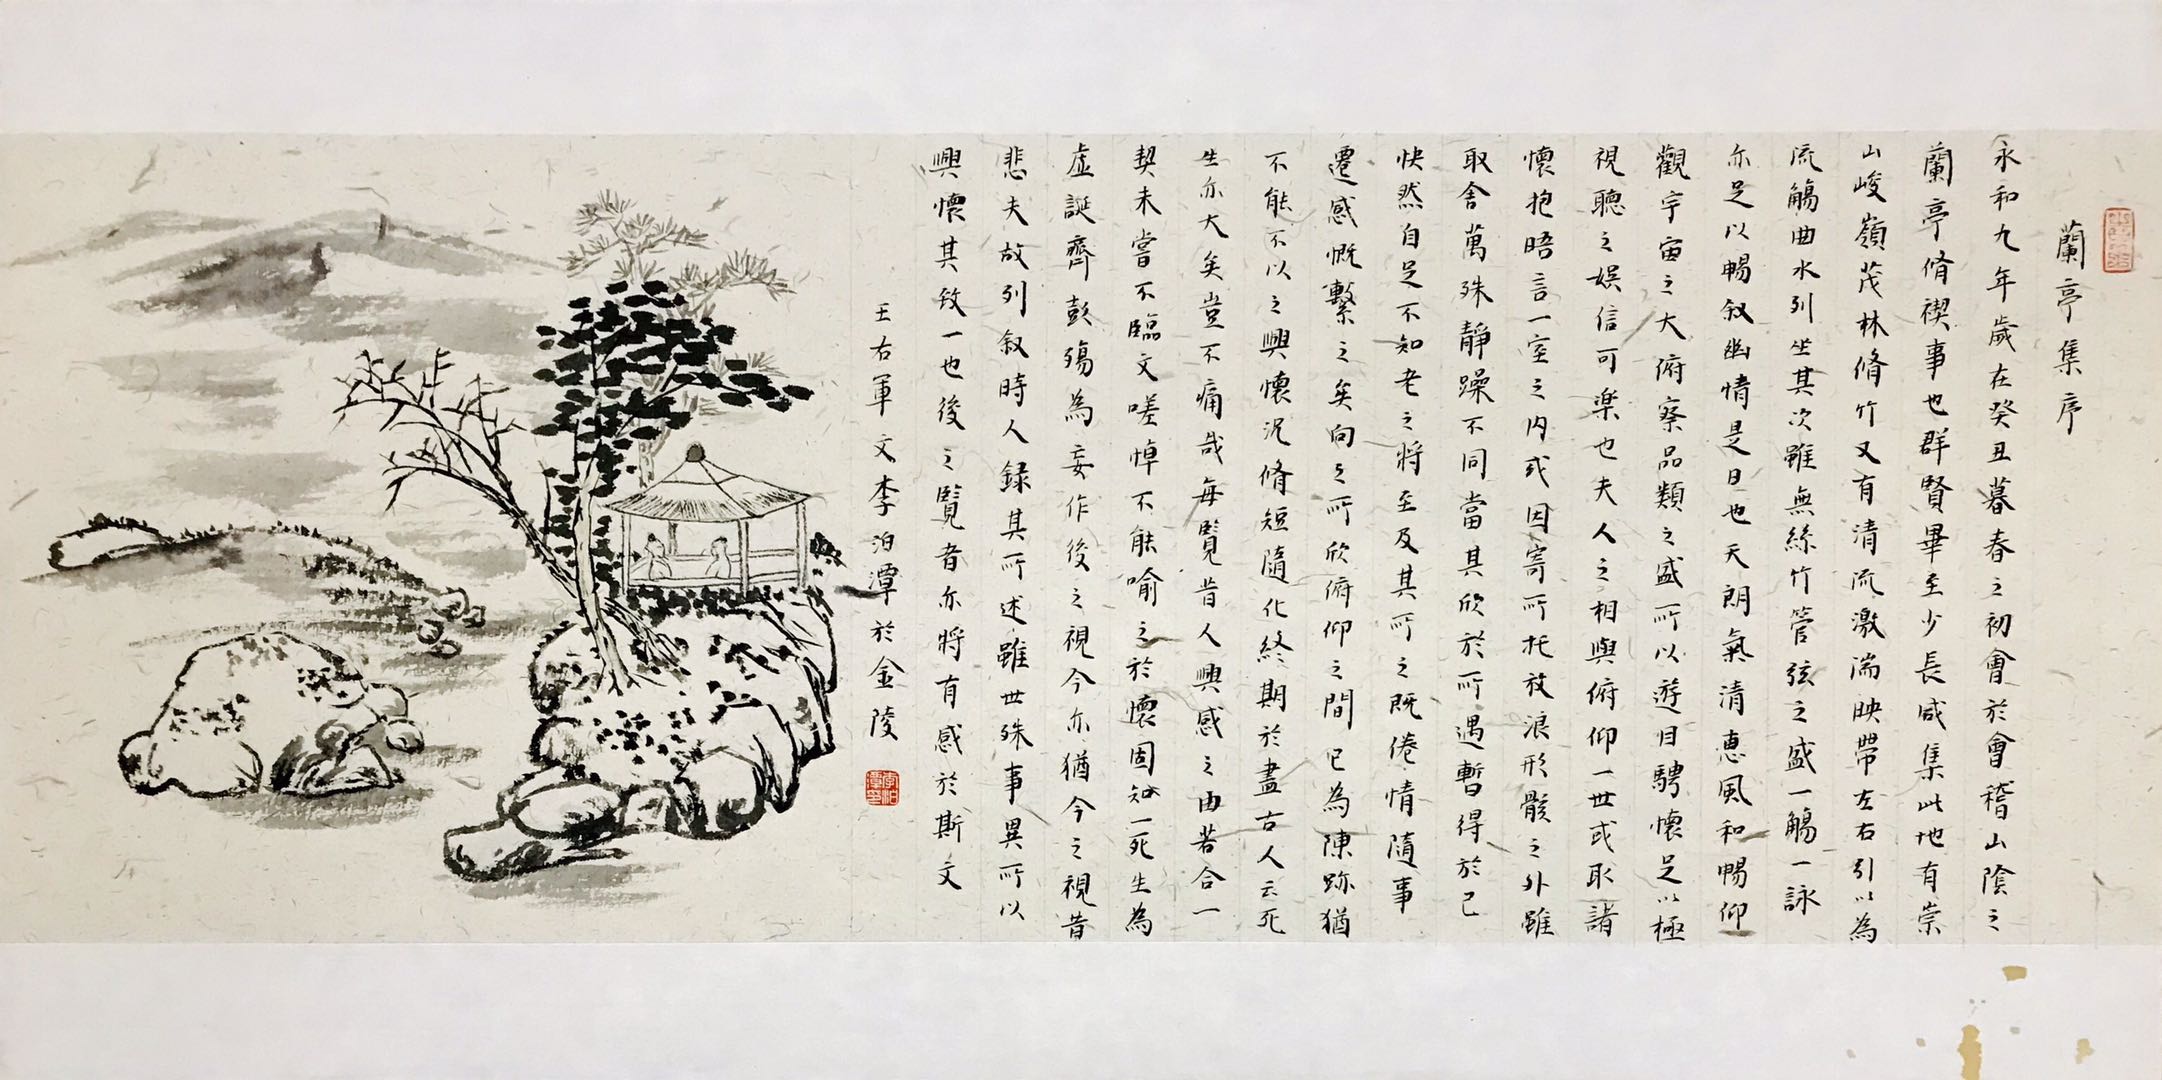 蘭亭集序
永和九年歲在癸丑暮春之初會於會稽山陰之
蘭亭脩禊事也群賢畢至少長咸集此地有崇
山峻嶺茂林脩竹又有清流激湍映帶左右引以為
流觴曲水列坐其次雖無絲竹管弦之盛一觴一詠
亦足以暢敘幽情是日也天朗氣清惠風和暢仰
觀宇宙之大俯察品類之盛所以遊目騁懷足以極
視聽之娛信可樂也夫人之相與俯仰一世或取諸
懷抱晤言一室之內或因寄所托放浪形骸之外雖
取舍萬殊靜躁不同當其欣於所遇暫得於己
快然自足不知老之將至及其所之既倦情隨事
遷感慨繫之矣向之所欣俯仰之間已為陳跡猶
不能不以之興懷況脩短隨化終期於盡古人云死
生亦大矣豈不痛哉每覽昔人興感之由若合一
契未嘗不臨文嗟悼不能喻之於懷固知一死生為
虛誕齊彭殤為妄作後之視今亦猶今之視昔
悲夫故列敘時人錄其所述雖世殊事異所以
興懷其致一也後之覽者亦將有感於斯文
王右軍文李泊潭於金陵
李泊潭印